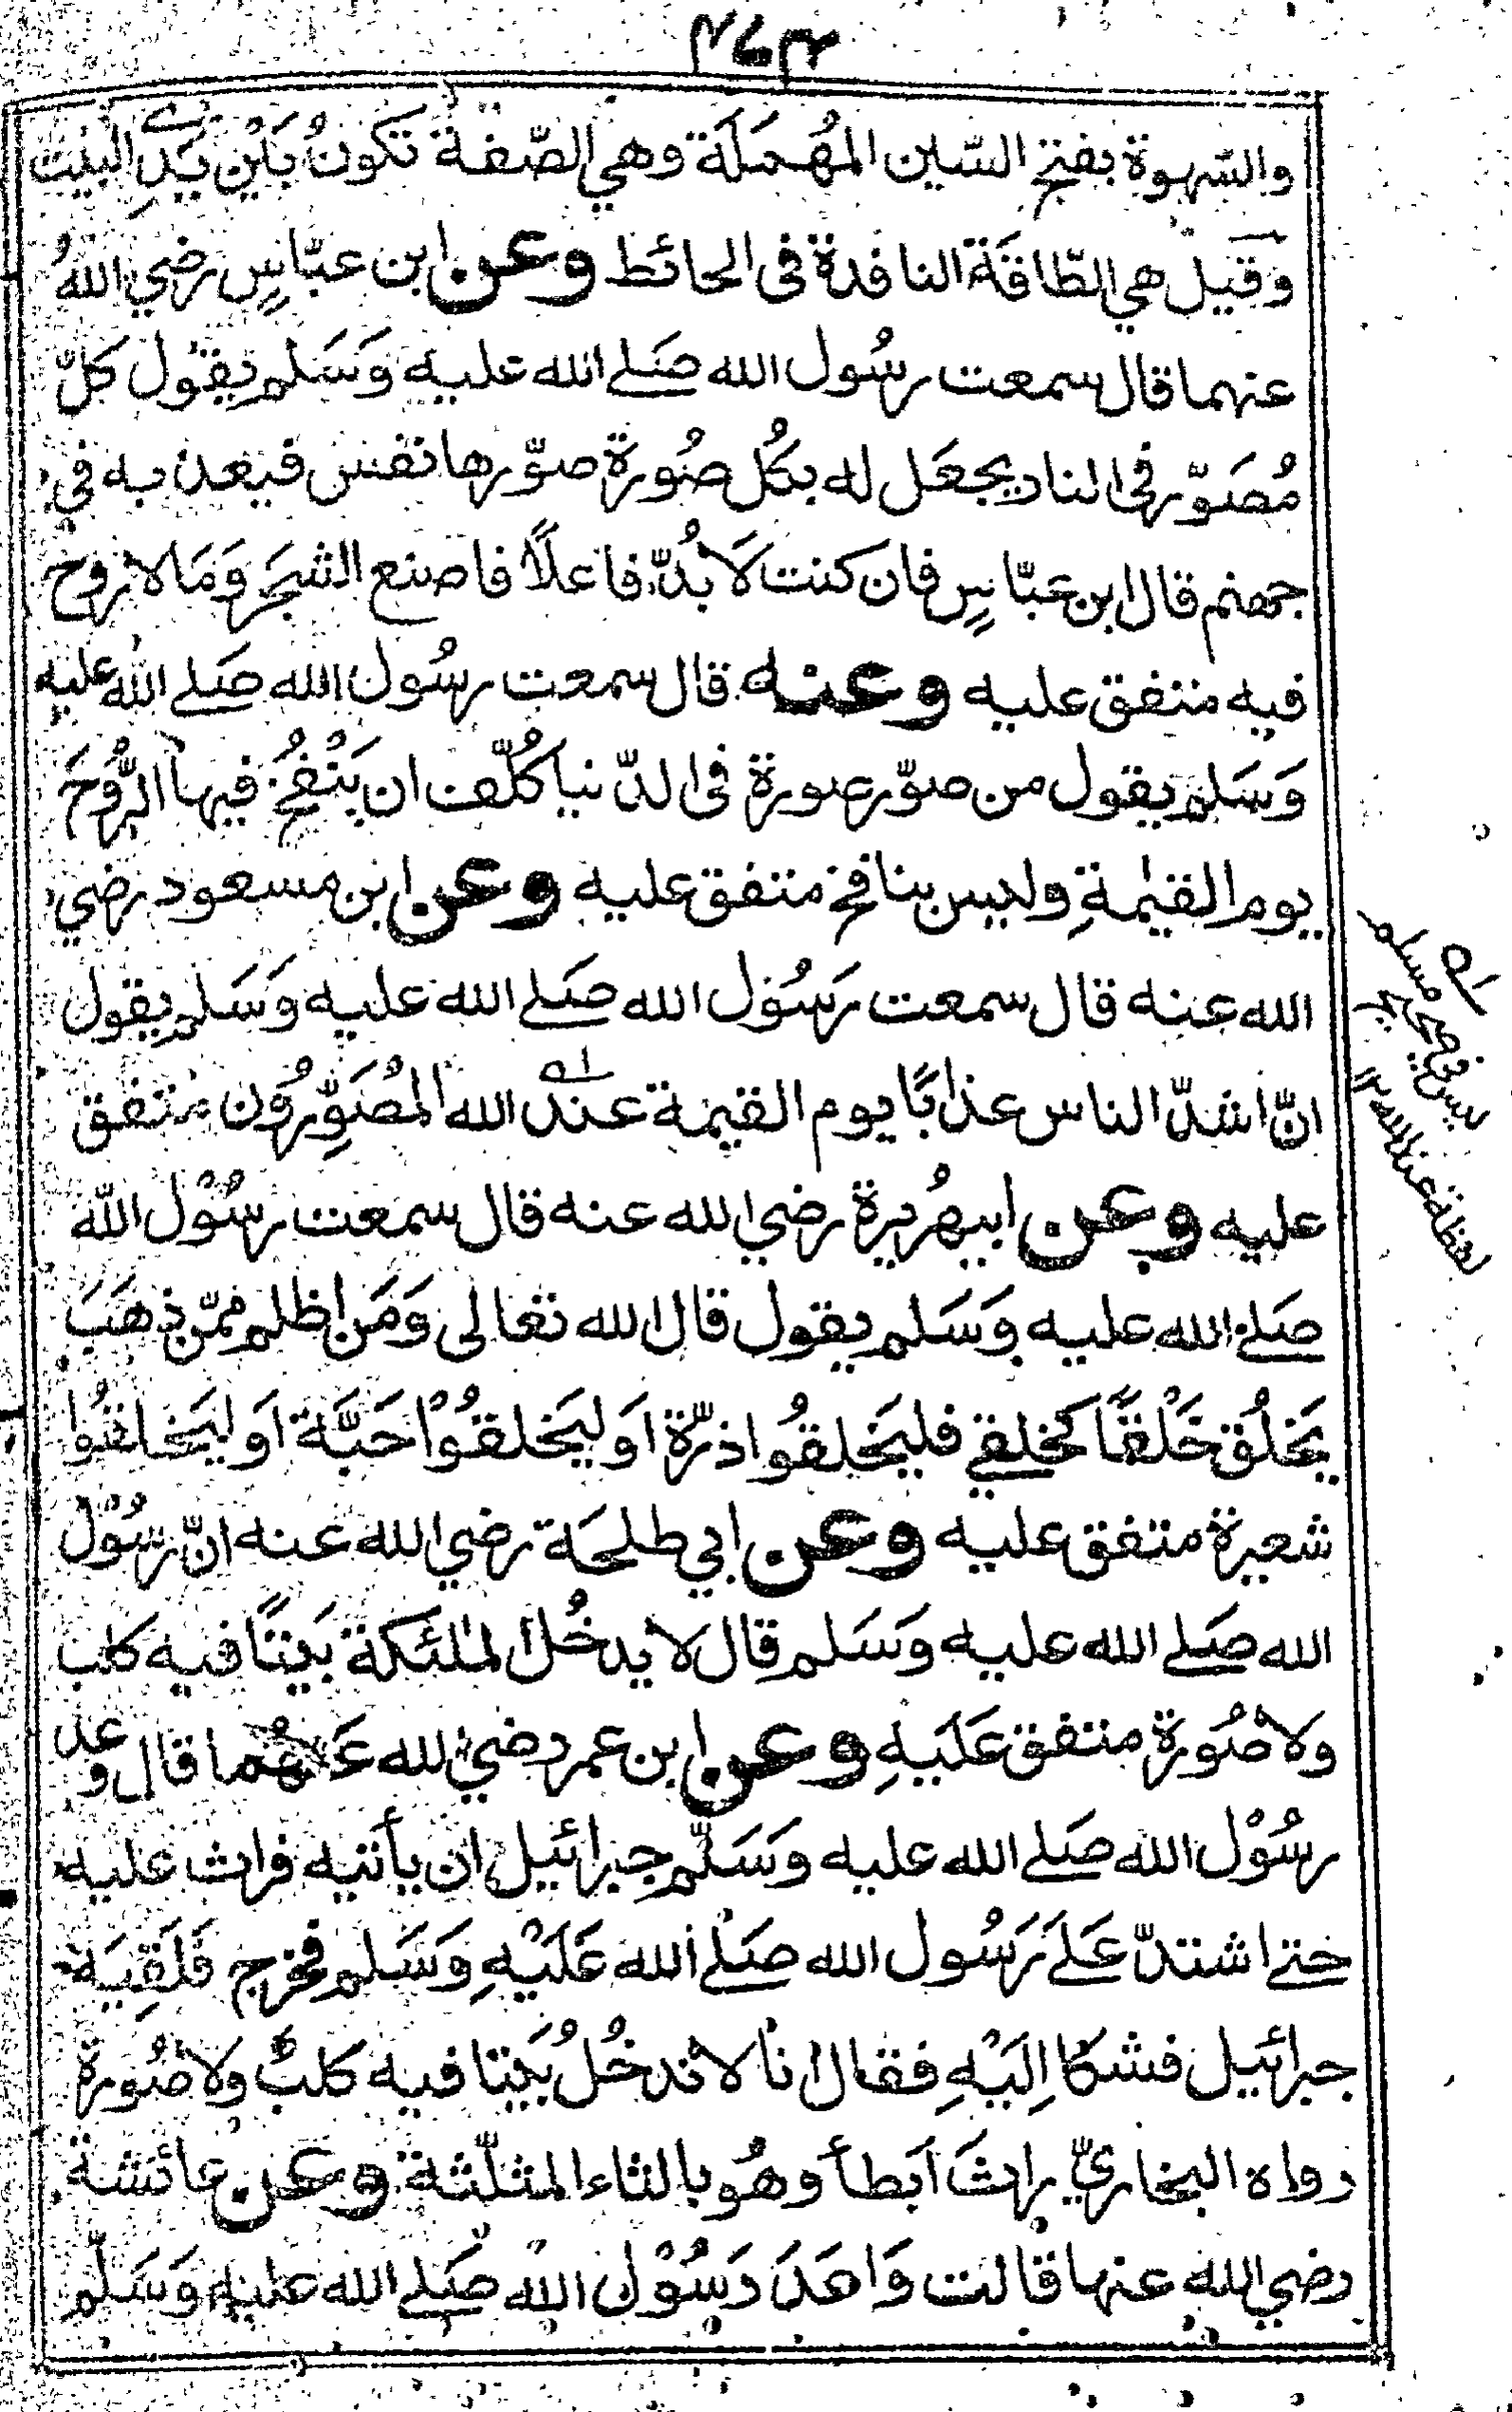 ۴۶۳
والسّهوة بفتح السّين المهُمَلَة وهي الصّفة تكونُ بَيْن يَدَيِ البيت
وَقيل هي الطّاقَة النافدة فى الحائط وعن ابن عبّاسٍ رضي اللهُ
عنهما قال سمعت رسُول الله صَلے الله عليه وَسَلم يقُول كلّ
مُصَوّر فى النار يجعَل له بكُل صُورة صوّرها نفس فيعذبه في
جهنم قال ابن عبّاسٍ فان كنت لَا بُدّ فاعلًا فاصنع الشجَر وَمَا لا روح
فيه متفق عليه وعنه قال سمعت رسُول الله صَلے الله عليه
وَسَلم يقول من صوّر صورة فى الدّنيا كُلّف ان يَنْفُخ فيها الرُّوحَ
يوم القيٰمةِ وليس بنافخ متفق عليه وعن ابن مسعود رضي
الله عنه قال سمعت رَسُول الله صَلے الله عليه وَسَلم يقول
انّ اشدّ الناس عذابًا يوم القيٰمة عندَ ا؎ الله المُصَوِّرُون متفق
عليه وعن ابيهُريرة رضي الله عنه قال سمعت رسُوْل اللّه
صَلے الله عليه وَسَلم يقول قال الله تعالى وَمَن اظلم ممّن ذهَبَ
يَخلُق خَلْقًا كخلقے فليَخلقُوا ذرّة اَو ليَخلقُوْا حَبَّة اَو ليَخلقُوا
شعيرة متفق عليه وعن ابي طلحَة رضي الله عنه انّ رسُوْل
الله صَلے الله عليه وَسَلم قال لا يدخُل الملٰئكة بَيتًا فيه كلب
ولا صُورة متفق عَلَيهِ وعن ابن عمر رضي الله عَنهُما قال وعد
رسُوْل الله صَلے الله عليه وَسَلّم جبرائيل ان يأتيه فراث عليه
حتے اشتدّ عَلےَ رَسُول الله صَلے الله عَلَيْهِ وَسَلم فخرج فَلَقِيَه
جبرائيل فشكا اِلَيْهِ فقال انا لا ندخُلُ بَيتا فيه كلبٌ ولا صُورة
رواه البخاريّ راثَ اَبطأ وهُو بالثاء المثلّثة وعن عائشة
رضي الله عنها قالت وَاعَدَ رَسُوْل الله صَلے الله عليهِ وَسَلّم
ا؎ ليس في صحيح مسلم
لفظة عند الله ١٢